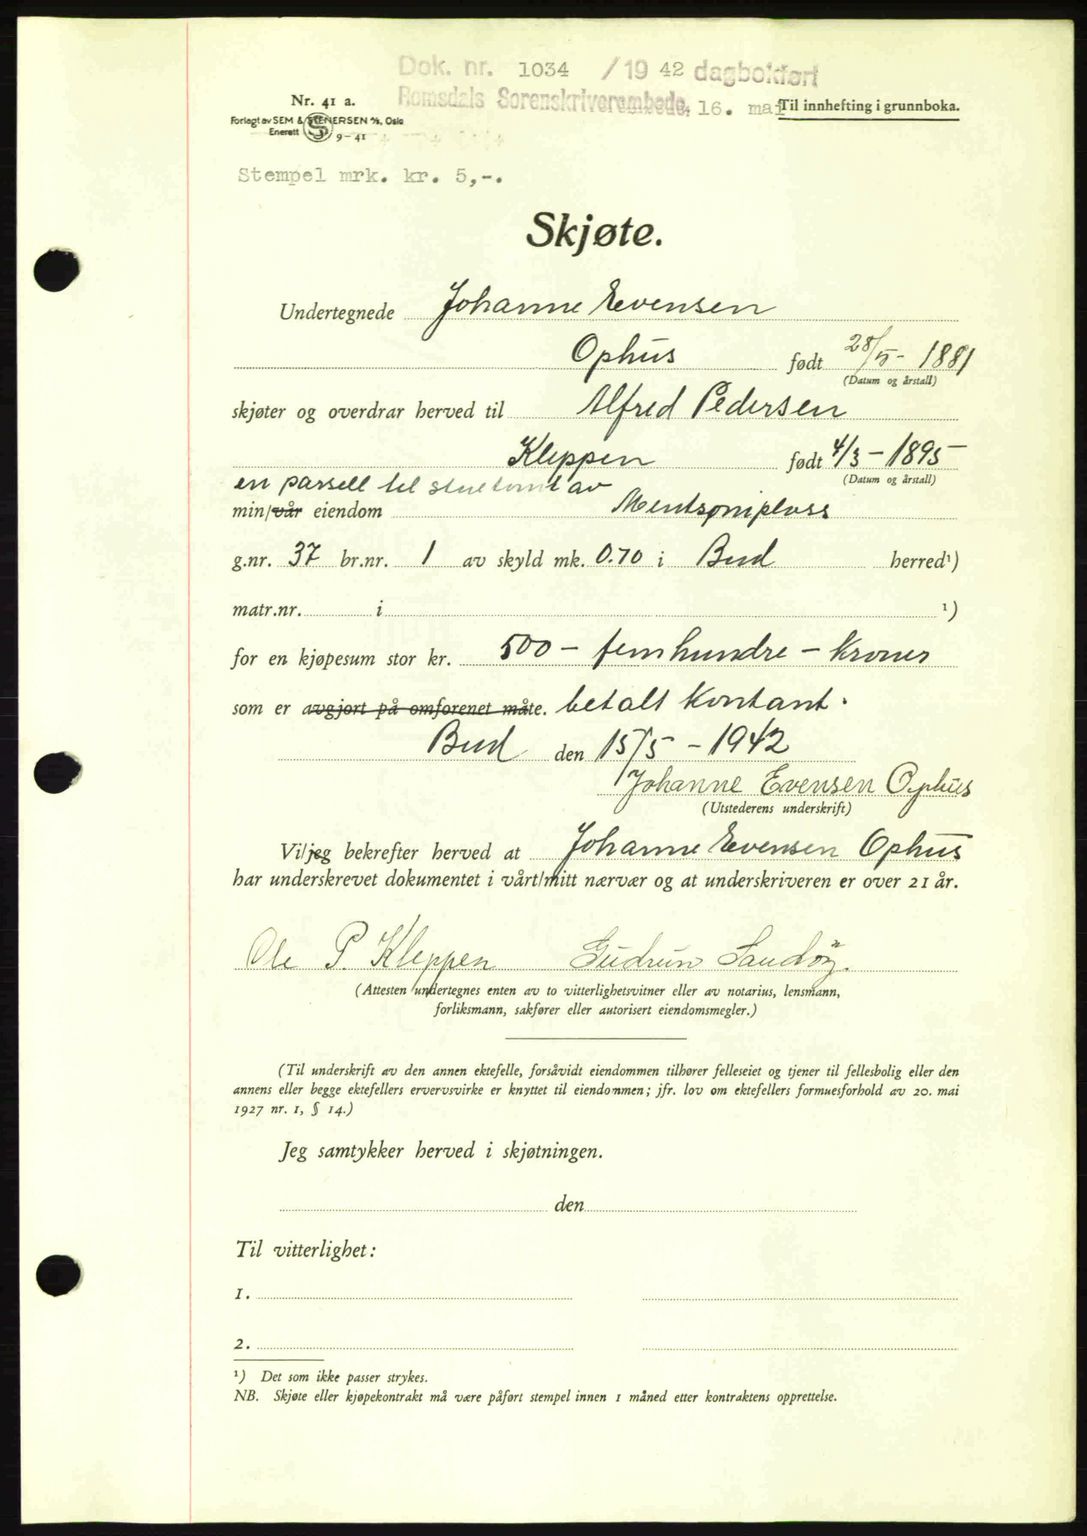 Dok. nr. 1034 /19 42 dagbokført
Romsdals Sorenskriverembede, 16. mai
Nr. 41 a.
Til innhefting i grunnboka.
Forlagt av SEM & STENERSEN A/S, Oslo
Enerett S 9-41
Stempel mrk. kr. 5,-.
Skjøte.
Undertegnede Johanne Evensen
Ophus født 28/5- 1881
(Datum og årstall)
skjøter og overdrar herved til Alfred Pedersen
Kleppen født 4/3-1895
(Datum og årstall)
en parsell til stuetomt av
min/vår eiendom
g.nr. 37 br.nr. 1 av skyld mk. 0.70 i Bud herred¹)
matr.nr. i ¹)
for en kjøpesum stor kr. 500 - femhundre - kroner
som er avgjort på omforenet måte. betalt kontant.
Bud den 15/5 - 1942
Johanne Evensen Ophus
(Utstederens underskrift)
Vi/jeg bekrefter herved at Johanne Evensen Ophus
har underskrevet dokumentet i vårt/mitt nærvær og at underskriveren er over 21 år.
Ole P. Kleppen Gudrun Sandøy.
(Attesten undertegnes enten av to vitterlighetsvitner eller av notarius, lensmann,
forliksmann, sakfører eller autorisert eiendomsmegler.)
(Til underskrift av den annen ektefelle, forsåvidt eiendommen tilhører felleseiet og tjener til fellesbolig eller den
annens eller begge ektefellers ervervsvirke er knyttet til eiendommen; jfr. lov om ektefellers formuesforhold av 20. mai
1927 nr. 1, § 14.)
Jeg samtykker herved i skjøtningen.
den
Til vitterlighet:
1.
2.
¹) Det som ikke passer strykes.
NB. Skjøte eller kjøpekontrakt må være påført stempel innen 1 måned etter kontraktens opprettelse.